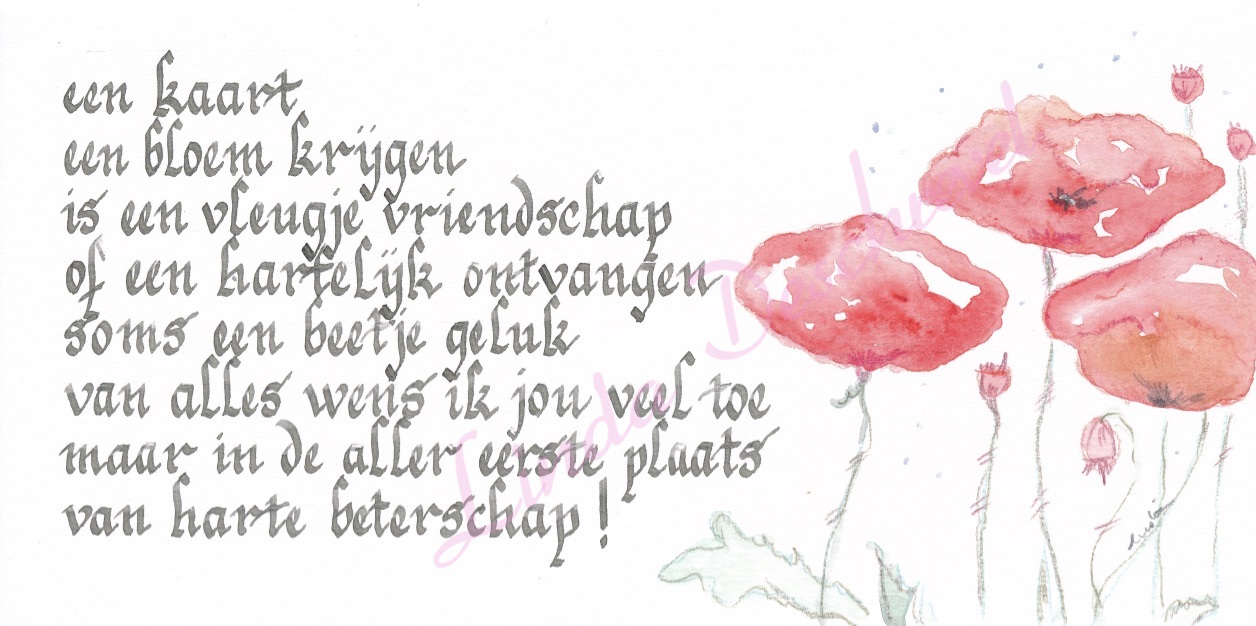 een kaart
een bloem krijgen
is een vleugje vriendschap
of een hartelijk ontvangen
soms een beetje geluk
van alles wens ik jou veel toe
maar in de aller eerste plaats
van harte beterschap !
Linda